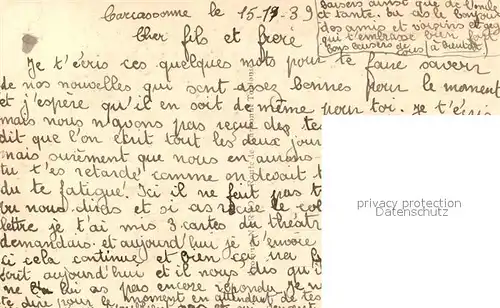 Carcassonne le 15-13-39
baisers ainsi que de l'oncle
et tante. tu as le bonjour
des amis et voisins et
qui t'embrasse bien fort
Bons baisers de tous (à bientôt)
Cher fils et frère
Je t'écris ces quelques mots pour te faire savoir
de nos nouvelles qui sont assez bonnes pour le moment
et j'espère qu'il en soit de même pour toi. Je t'écris
mais nous n'avons pas reçue des
dit que l'on écrit tout les deux jours
mais surement que nous en aurons
tu t'es retardé comme on devait
du te fatigué. Ici il ne fait pas
tu nous diras et si as reçue le col
lettre je t'ai mis 3 cartes du théâtre
demandais et aujourd'hui je t'envoie
ci cela continue et bien
écrit aujourd'hui et il nous dis qu'
ne lui as pas encore répondu je
te dire pour le moment en attendant de tes
privacy protection
Datenschutz